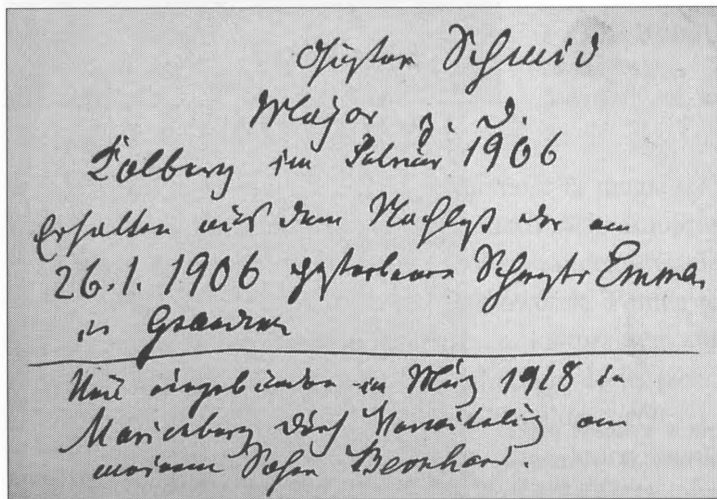 Gustav Schmid
Major z. D.
Colberg im Februar 1906
Erhalten aus dem Nachlaß der am
26.1. 1906 gestorbenen Schwester Emma
in Graudenz
Neu eingebunden im März 1918 in
Marienburg durch Vermittelung von
meinem Sohn Bernhard.